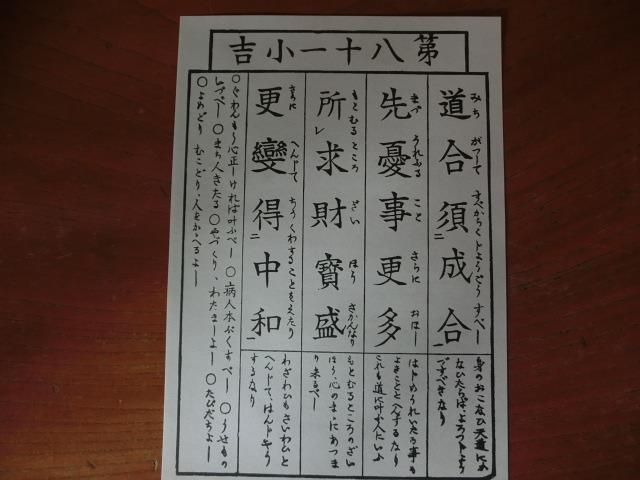 第八十一小吉
道合須成合
みち がつして すべからくじようごうすべし
身のおこなひ天道にか
なひたらば、よろづじよう
じゆすべきなり
先憂事更多
まづ うれふる こと さらに おほし
はじめうれいたる事も
よきこととへんずるなり
これも道に叶ふ人にいふ
所求財寶盛
もとむる ところ ざい ほう さかんなり
もとむるところのざい
ほう心のまゝにあつま
り来るべし
更變得中和
さらに へんじて ちうくわすることをえたり
わざわひもさいわひと
へんじて、はんじやう
するなり
〇ぐわんもう心正しければ叶ふべし 〇病人本ぶくすべし 〇うせもの
いづべし 〇まち人きたる 〇やづくり、わたましよし 〇たびだちよし
〇よめどり むこどり、人をかゝへるよし